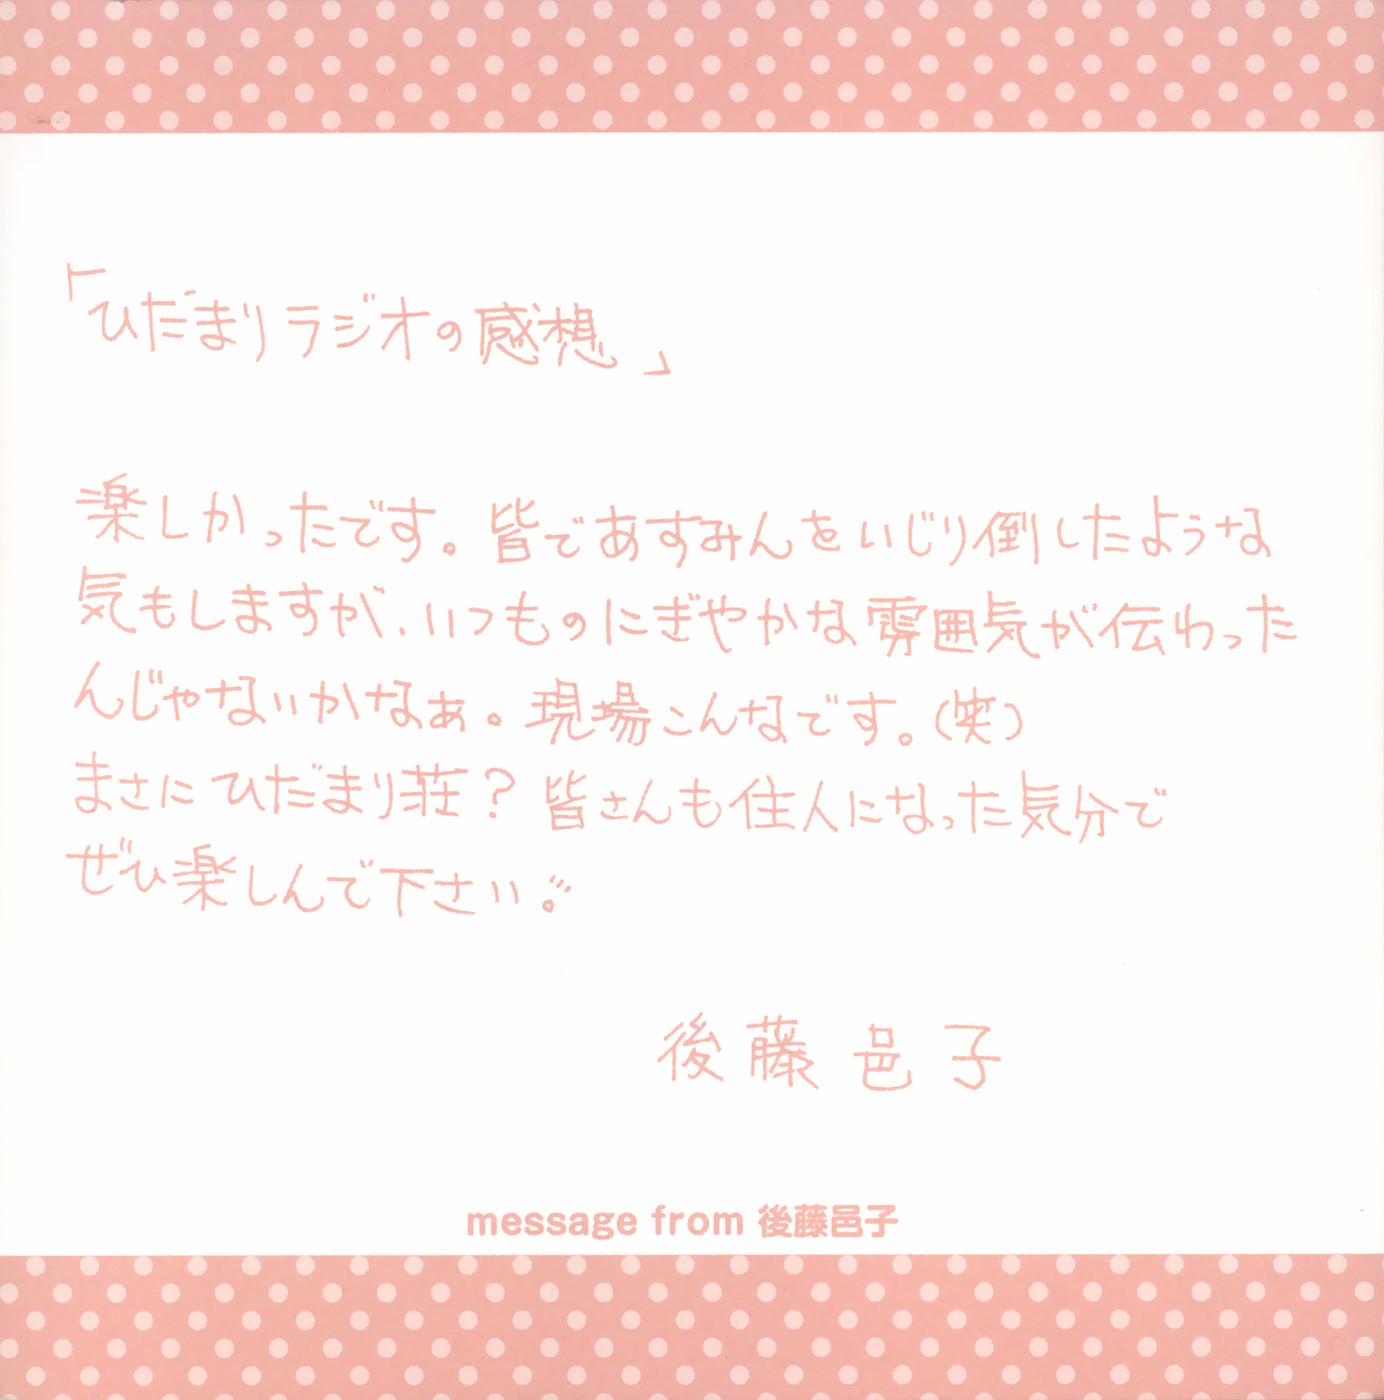 「ひだまりラジオの感想」
楽しかったです。皆であすみんをいじり倒したような
気もしますが、いつものにぎやかな雰囲気が伝わった
んじゃないかなぁ。現場こんなです。(笑)
まさにひだまり荘?皆さんも住人になった気分で
ぜひ楽しんで下さい。
後藤邑子
message from 後藤邑子